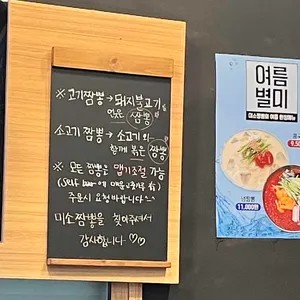 ※고기짬뽕 → 돼지불고기
얹은 짬뽕
소고기 짬뽕 → 소고기와
함께 볶은 짬뽕
※ 모든 짬뽕은 맵기조절 가능
(Self bar에
주문시 요청바랍니다
미소짬뽕을 찾아주셔서
감사합니다 ♡♡
여름
별미
미소짬뽕의 여름 한정메뉴
9.50
냉짬뽕
11,000원